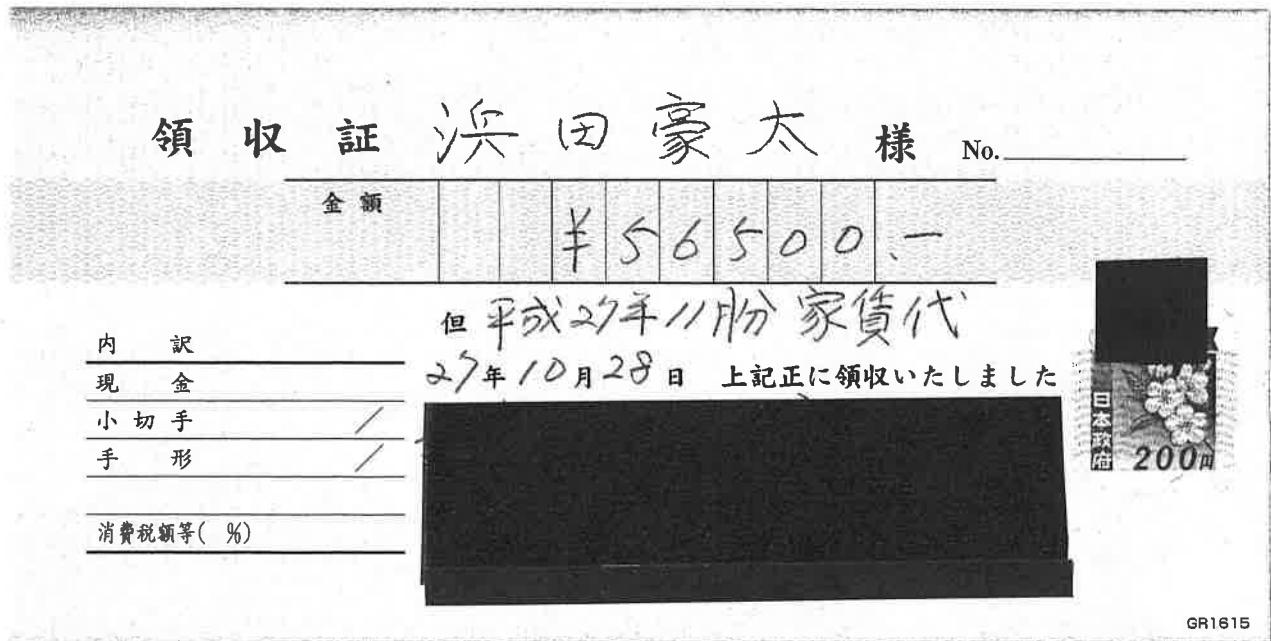 領収証 浜田豪太 様 No.
金額 ¥56500.-
但 平成27年11月分 家賃代
27年10月28日 上記正に領収いたしました
内訳
現金
小切手 /
手形 /
消費税額等( %)
日本政府
200円
GR1615